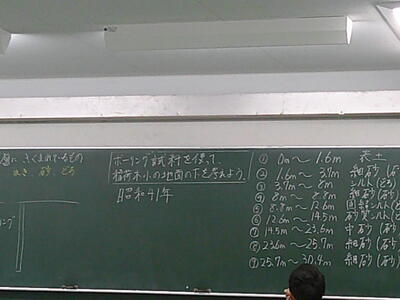 に ふくまれているもの
れき、砂、どろ
ボーリング試料を使って、
稲荷木小の地面の下を考えよう。
昭和41年
① 0m〜1.6m 表土
② 1.6m〜3.7m 細砂
③ 3.7m〜8m シルト(どろ)
④ 8m〜8.8m 細砂
⑤ 8.8m〜12.6m 固結シルト(ど
⑥ 12.6m〜14.5m 砂質シルト
⑦ 14.5m〜23.6m 中砂
⑧ 23.6m〜25.7m 細砂
⑨ 25.7m〜30.4m 細砂